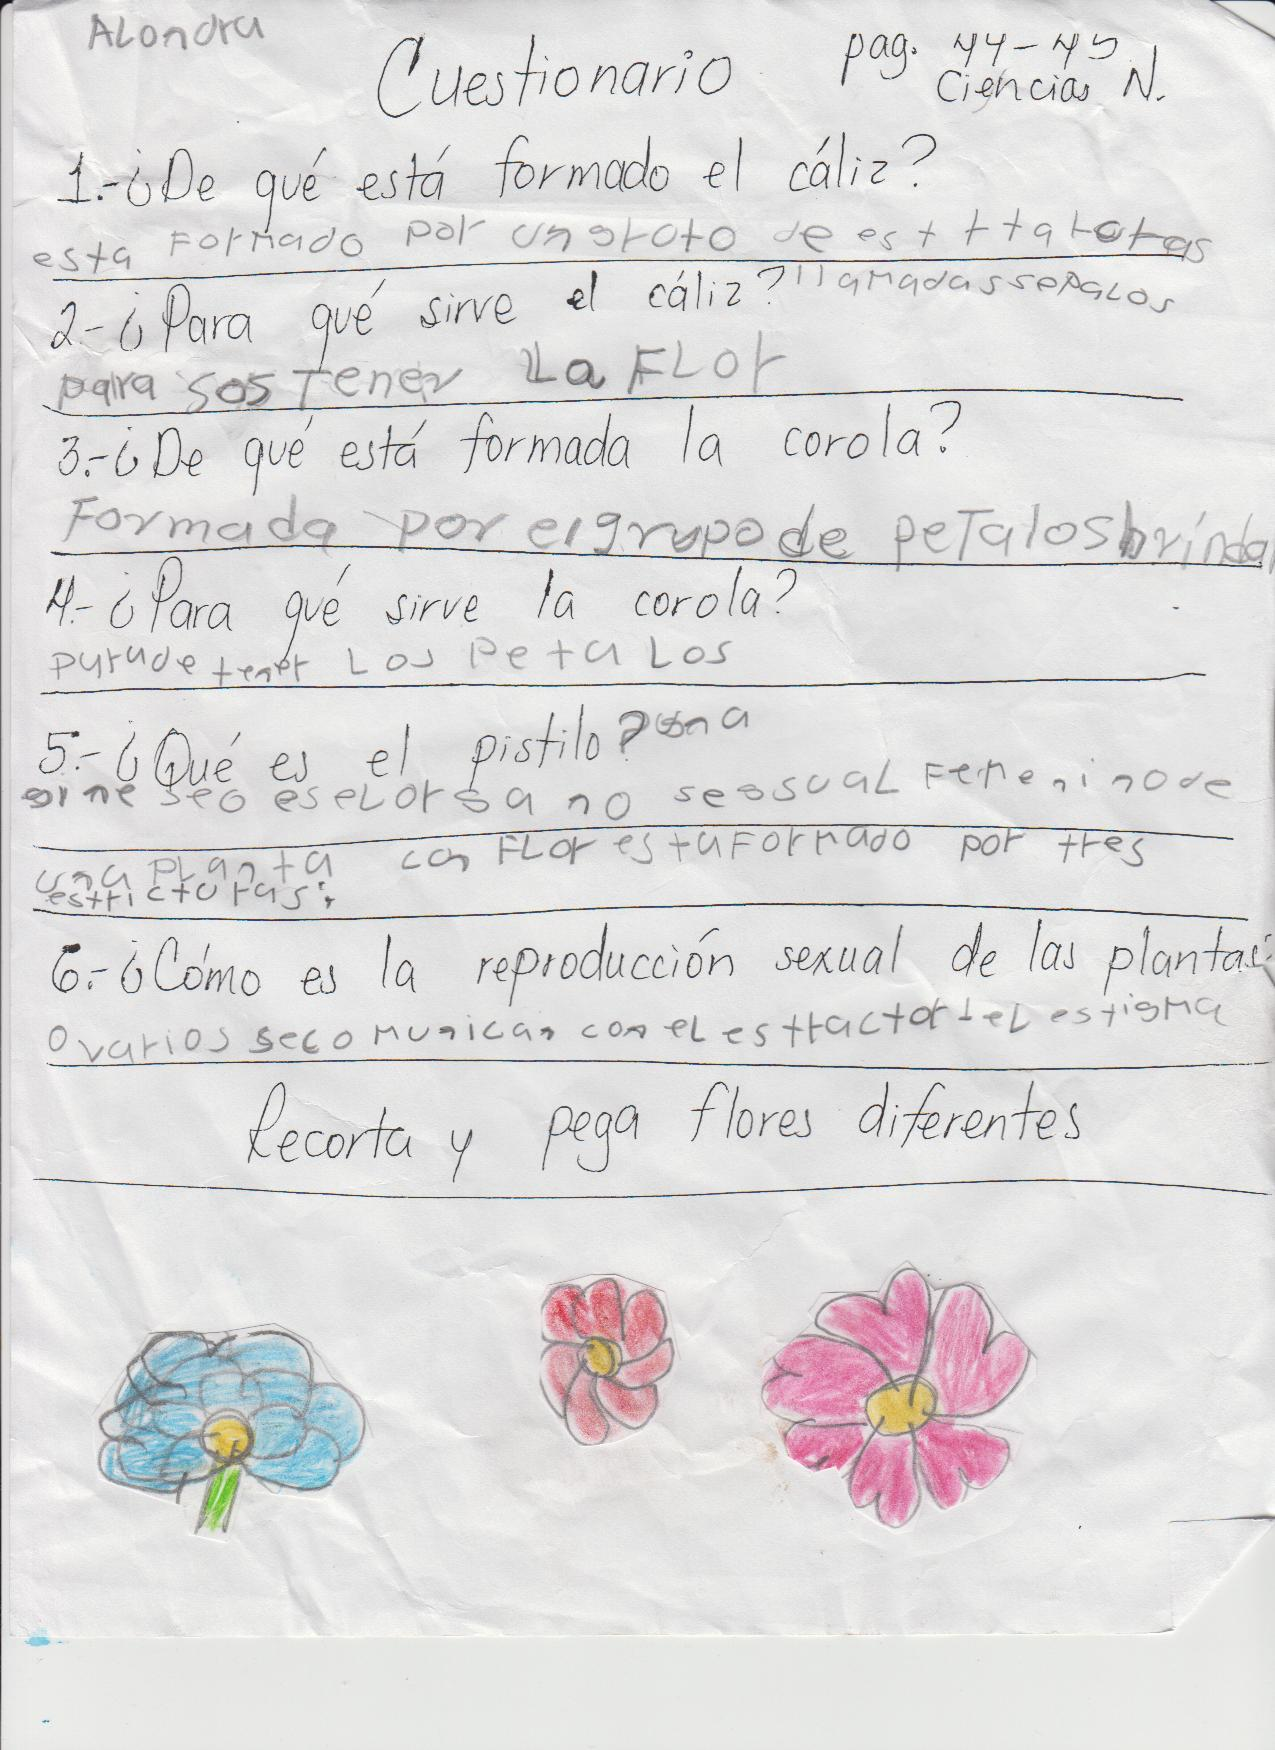 Alondra
Cuestionario
pag. 44-45
Ciencias N.
1.-¿De qué está formado el cáliz?
esta formado por un de
llamadas sepalos
2-¿Para qué sirve el cáliz?
para sostener la FLor
3.-¿De qué está formada la corola?
Formada por el grupo de peTalos brindan
4.-¿Para qué sirve la corola?
para detener Los PetaLos
5.-¿Qué es el pistilo? una
gineseo es eL organo sessuaL Femenino de
una pLanta con FLor esta Formado por tres
estricturas:
6.-¿Cómo es la reproducción sexual de las plantas?
Ovarios se comunican con eL deL estigma
Recorta y pega flores diferentes